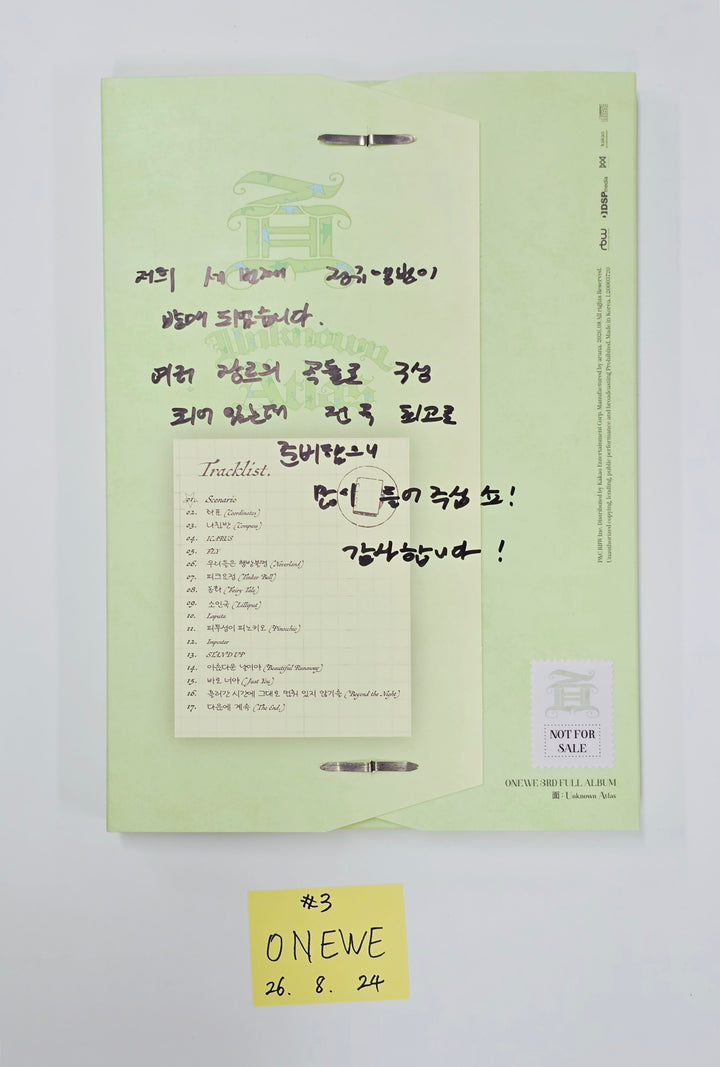 저희 세 번째 정규앨범이
발매 되었습니다.
Unknown
Atlas
여러 장르의 곡들로 구성
되어 있는데 전 곡 최고로
준비했으니
많이 들어 주십쇼!
감사합니다!
Tracklist.
01. Scenario
02. 좌표 (Coordinates)
03. 나침반 (Compass)
04. ICARUS
05. FLY
06. 우리들은 행방불명 (Neverland)
07. 피크요정 (Tinker Bell)
08. 동화 (Fairy Tale)
09. 소인국 (Lilliput)
10. Laputa
11. 피투성이 피노키오 (Pinocchio)
12. Imposter
13. STAND UP
14. 아름다운 날이야 (Beautiful Runaway)
15. 바로 너야 (Just You)
16. 흘러간 시간에 그대로 멈춰 있지 않기를 (Beyond the Night)
17. 다음에 계속 (The End)
rbw DSPmedia kakao
P&C RBW Inc. Distributed by Kakao Entertainment Corp. Manufactured by artana. 2026.08 All rights Reserved.
Unauthorized copying, lending, public performance and broadcasting Prohibited. Made in Korea. L200003720
NOT FOR
SALE
ONEWE 3RD FULL ALBUM
面 : Unknown Atlas
#3
ONEWE
26. 8. 24